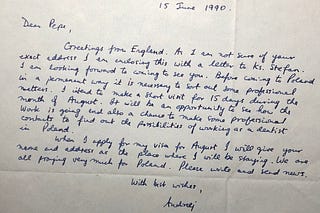 15 June 1990.
Dear Pepe,
Greetings from England. As I am not sure of your
exact address I am enclosing this with a letter to Ks. Stefan.
I am looking forward to coming to see you. Before coming to Poland
in a permanent way it is necessary to sort out some professional
matters. I intend to make a short visit for 15 days during the
month of August. It will be an opportunity to see how the
work is going and also a chance to make some professional
contacts to find out the possibilities of working as a dentist
in Poland.
When I apply for my visa for August I will give your
name and address as the place where I will be staying. We are
all praying very much for Poland. Please write and send news.
With best wishes,
Andrej